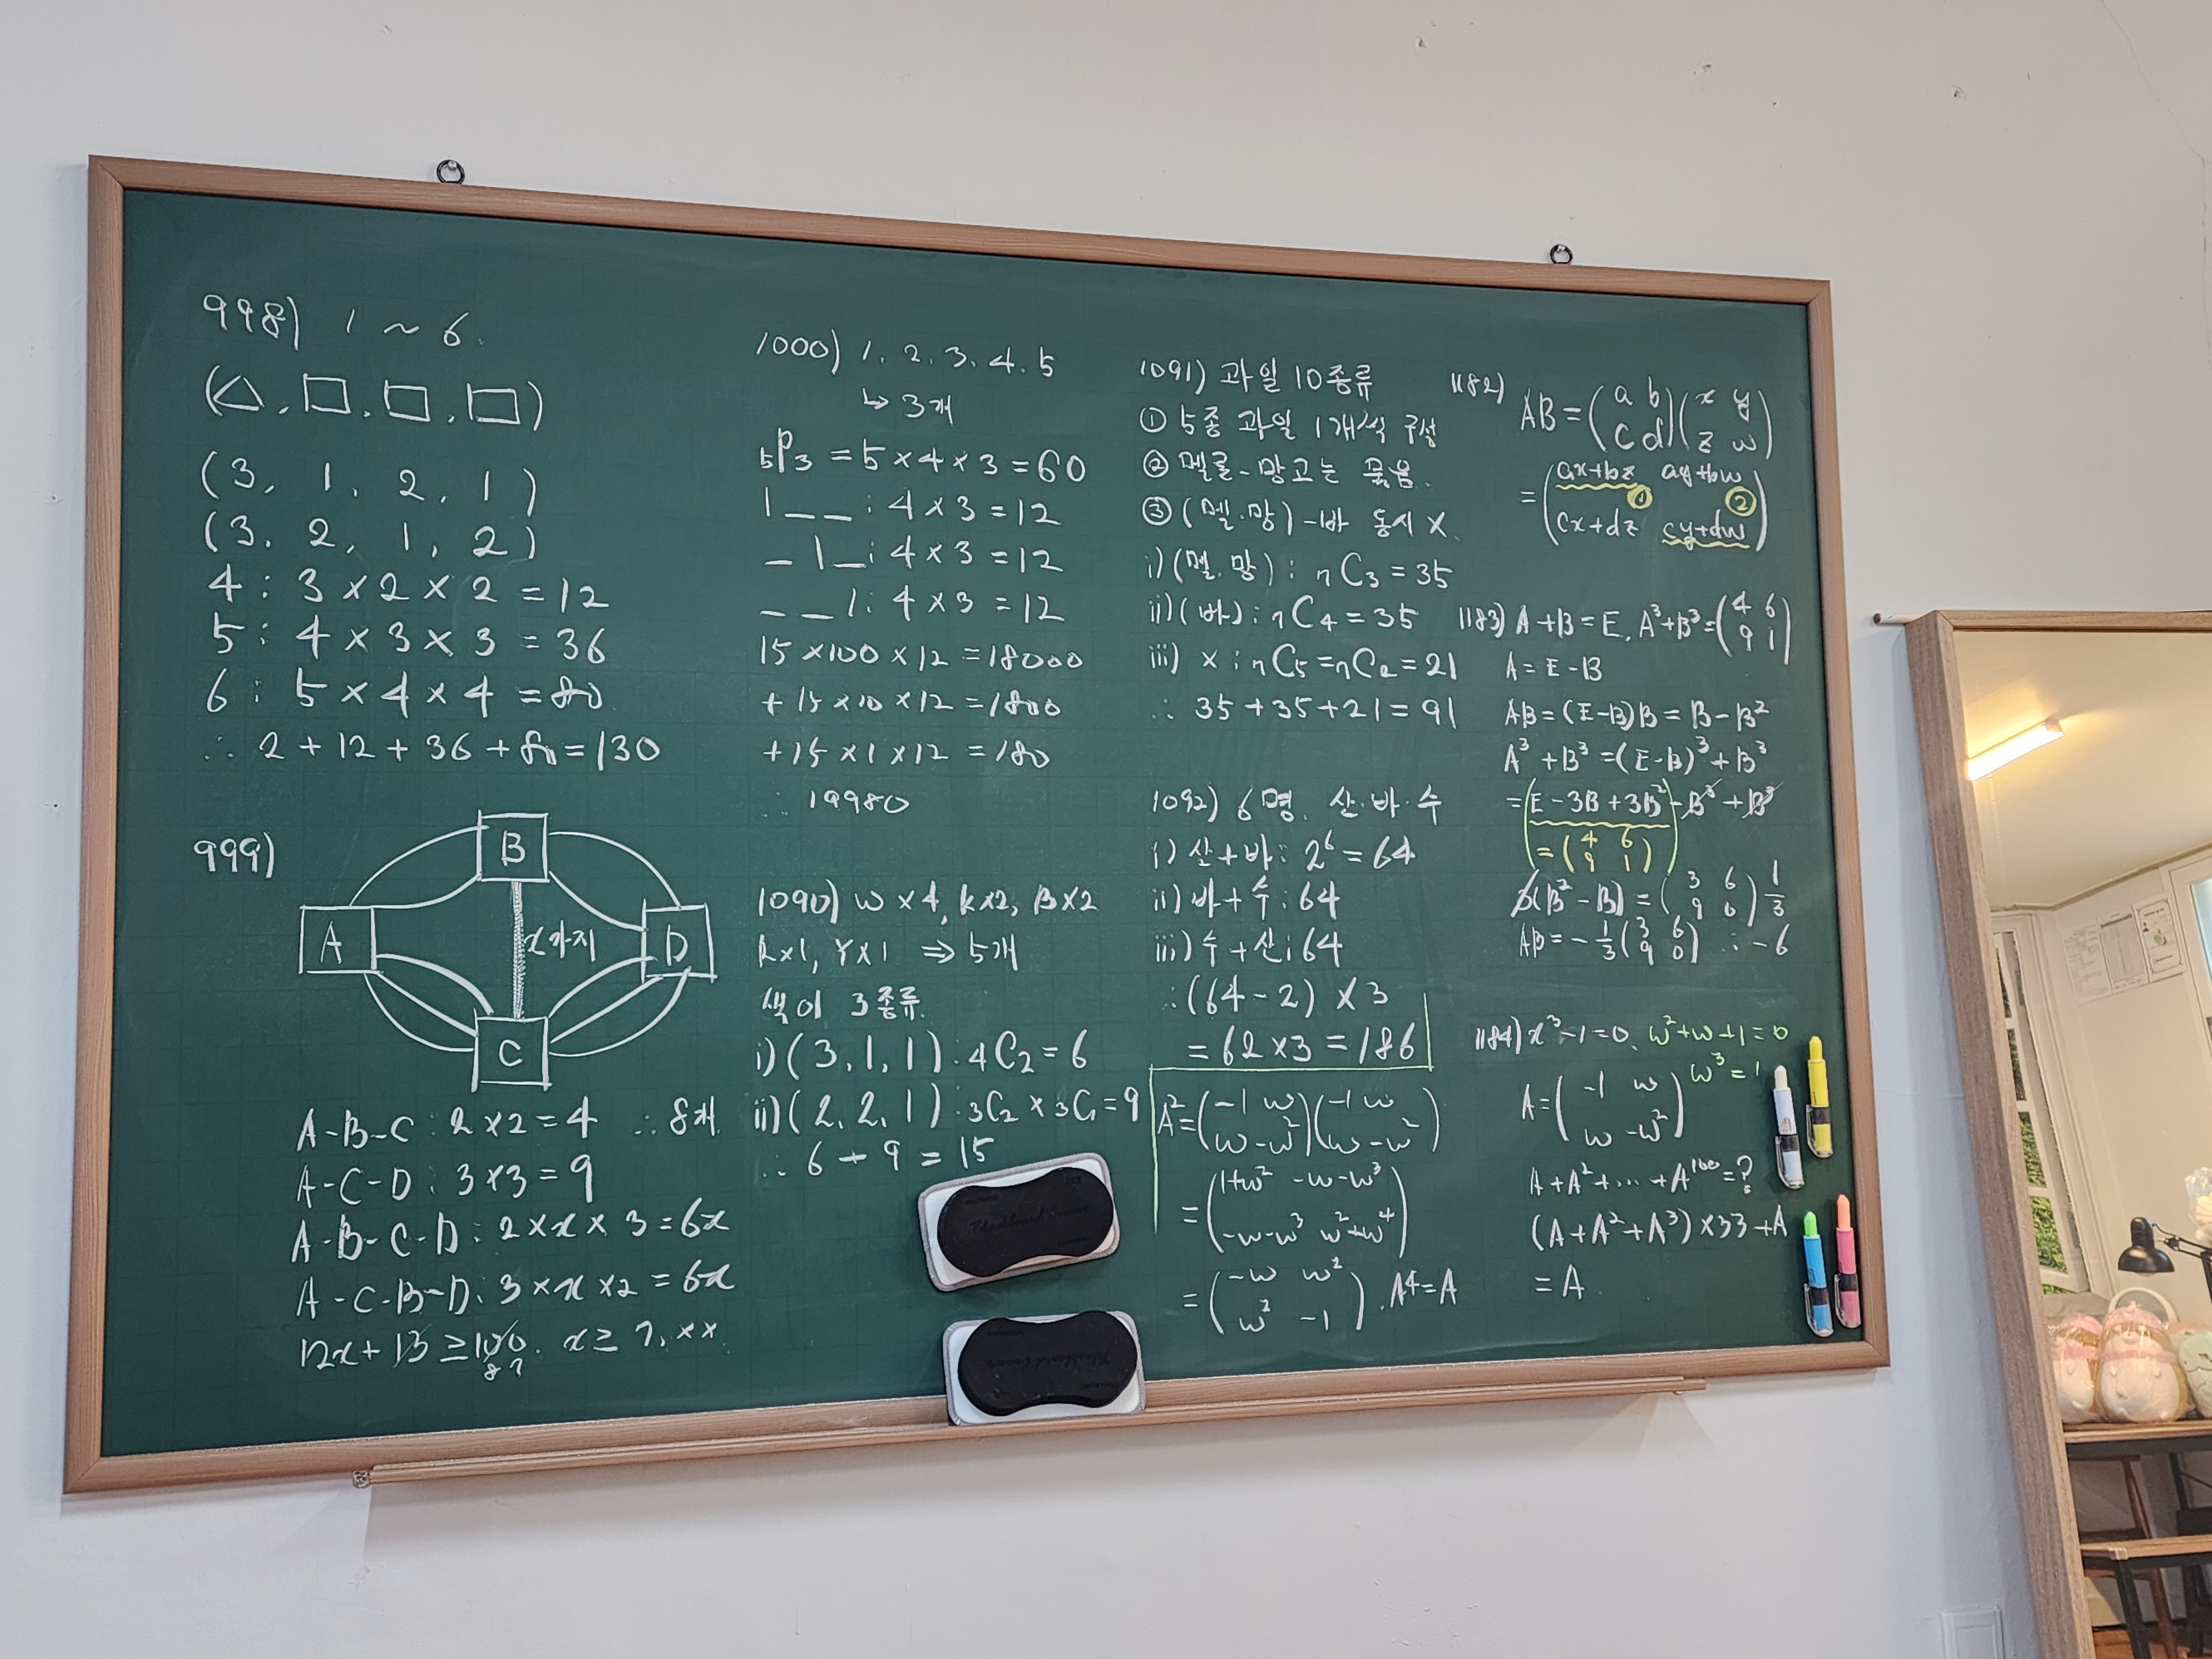 998) 1 ~ 6.
(△, □, □, □)
(3, 1, 2, 1)
(3, 2, 1, 2)
4 : 3 × 2 × 2 = 12
5 : 4 × 3 × 3 = 36
6 : 5 × 4 × 4 = 80
∴ 2 + 12 + 36 + 80 = 130
999)
B
A
x가지
D
C
A-B-C : 2 × 2 = 4 ∴ 8개
A-C-D : 3 × 3 = 9
A-B-C-D : 2 × x × 3 = 6x
A-C-B-D : 3 × x × 2 = 6x
12x + 13 ≥ 100. x ≥ 7.××
87
1000) 1. 2. 3. 4. 5
↳ 3개
₅P₃ = 5 × 4 × 3 = 60
1 _ _ : 4 × 3 = 12
_ 1 _ : 4 × 3 = 12
_ _ 1 : 4 × 3 = 12
15 × 100 × 12 = 18000
+ 15 × 10 × 12 = 1800
+ 15 × 1 × 12 = 180
∴ 19980
1090) W × 4, K × 2, B × 2
R × 1, Y × 1 ⇒ 5개
색이 3종류.
i) (3, 1, 1) : ₄C₂ = 6
ii) (2, 2, 1) : ₃C₂ × ₃C₁ = 9
∴ 6 + 9 = 15
1091) 과일 10종류
① 5종 과일 1개씩 구성
② 멜론-망고는 묶음.
③ (멜.망)-바 동시 X.
i) (멜.망) : ₇C₃ = 35
ii) (바) : ₇C₄ = 35
iii) × : ₇C₅ = ₇C₂ = 21
∴ 35 + 35 + 21 = 91
1092) 6명. 산.바.수
i) 산+바 : 2⁶ = 64
ii) 바+수 : 64
iii) 수+산 : 64
∴ (64 - 2) × 3
= 62 × 3 = 186
A² = (-1 ω / ω -ω²)(-1 ω / ω -ω²)
= (1+ω² -ω-ω³ / -ω-ω³ ω²+ω⁴)
= (-ω ω² / ω² -1). A⁴ = A
1182) AB = (a b / c d)(x y / z w)
= (ax+bz ay+bw / cx+dz cy+dw) ① ②
1183) A + B = E, A³+B³ = (4 6 / 9 1)
A = E - B
AB = (E-B)B = B - B²
A³ + B³ = (E-B)³ + B³
= E - 3B + 3B² - B³ + B³
= (4 6 / 9 1)
3(B² - B) = (3 6 / 9 0) 1/3
AB = - 1/3 (3 6 / 9 0) ∴ -6
1184) x³ - 1 = 0, ω² + ω + 1 = 0
ω³ = 1
A = (-1 ω / ω -ω²)
A + A² + ... + A¹⁰⁰ = ?
(A + A² + A³) × 33 + A
= A